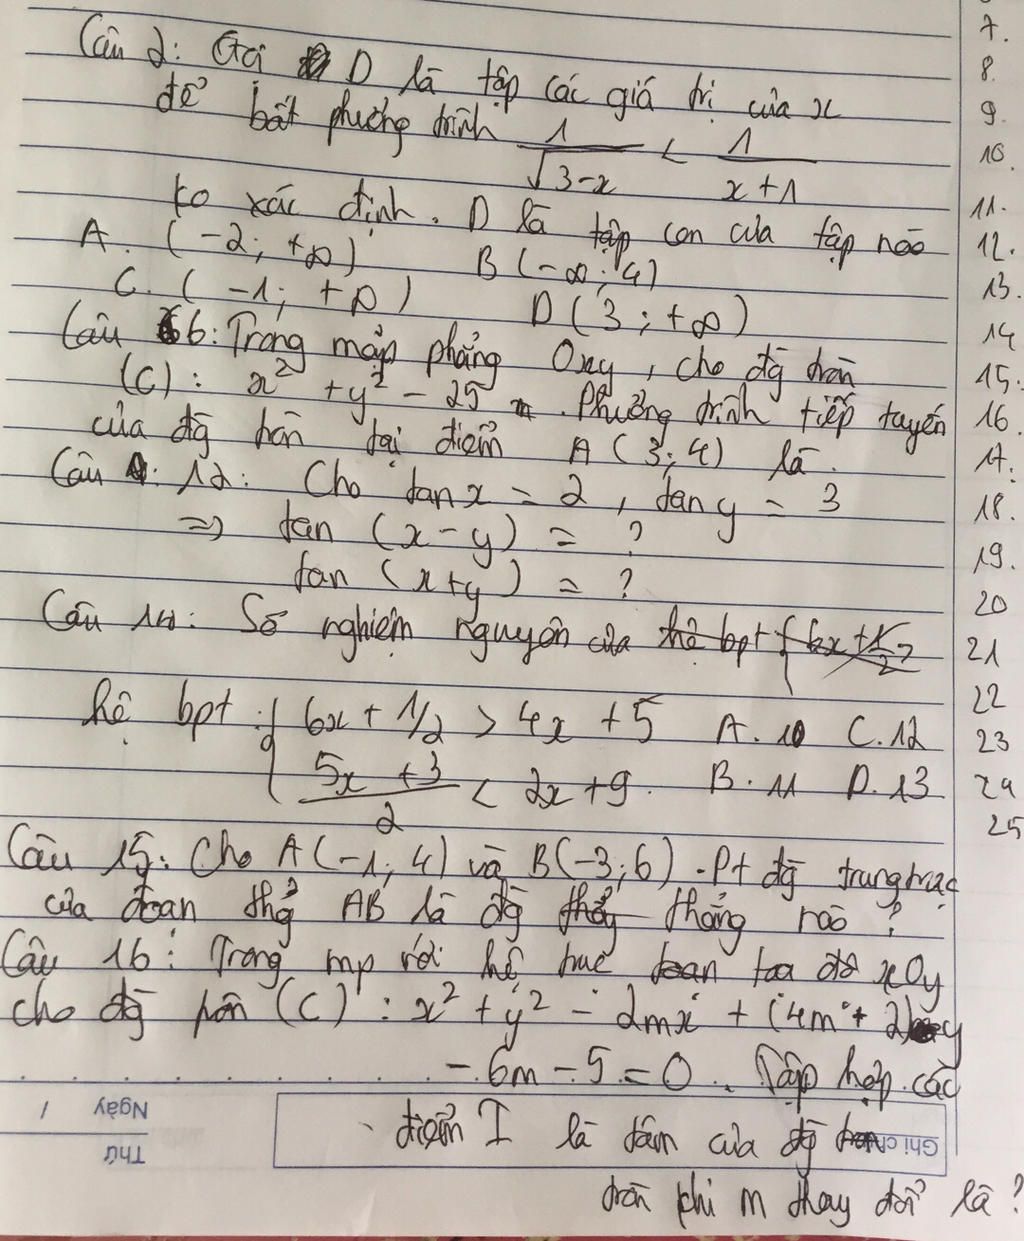 Câu 2: Gọi D là tập các giá trị của x
để bất phương trình 1/√(3-x) < 1/(x+1)
ko xác định. D là tập con của tập nào
A. (-2; +∞) B (-∞; 4)
C. (-1; +∞) D (3; +∞)
Câu 6: Trong mặp phẳng Oxy, cho đg tròn
(C): x² + y² - 25 . Phương trình tiếp tuyến
của đg tròn tại điểm A (3; 4) là.
Câu 12: Cho tan x = 2, tan y = 3
=> tan (x-y) = ?
tan (x+y) = ?
Câu 14: Số nghiệm nguyên của hệ bpt
hệ bpt: { 6x + 1/2 > 4x + 5 A. 10 C. 12
(5x + 3)/2 < 2x + 9. B. 11 D. 13
Câu 15: Cho A(-1; 4) và B(-3; 6). Pt đg trung trực
của đoạn thẳg AB là đg thẳng nào?
Câu 16: Trong mp với hệ trục toạ độ xOy
cho đg tròn (C): x² + y² - 2mx + (4m + 2)y
- 6m - 5 = 0. Tập hợp các
điểm I là tâm của đg
tròn khi m thay đổi là?
7.
8.
9.
10.
11.
12.
13.
14
15.
16.
17.
18.
19.
20
21
22
23
24
25
Ngày /
Thứ
Ghi chú